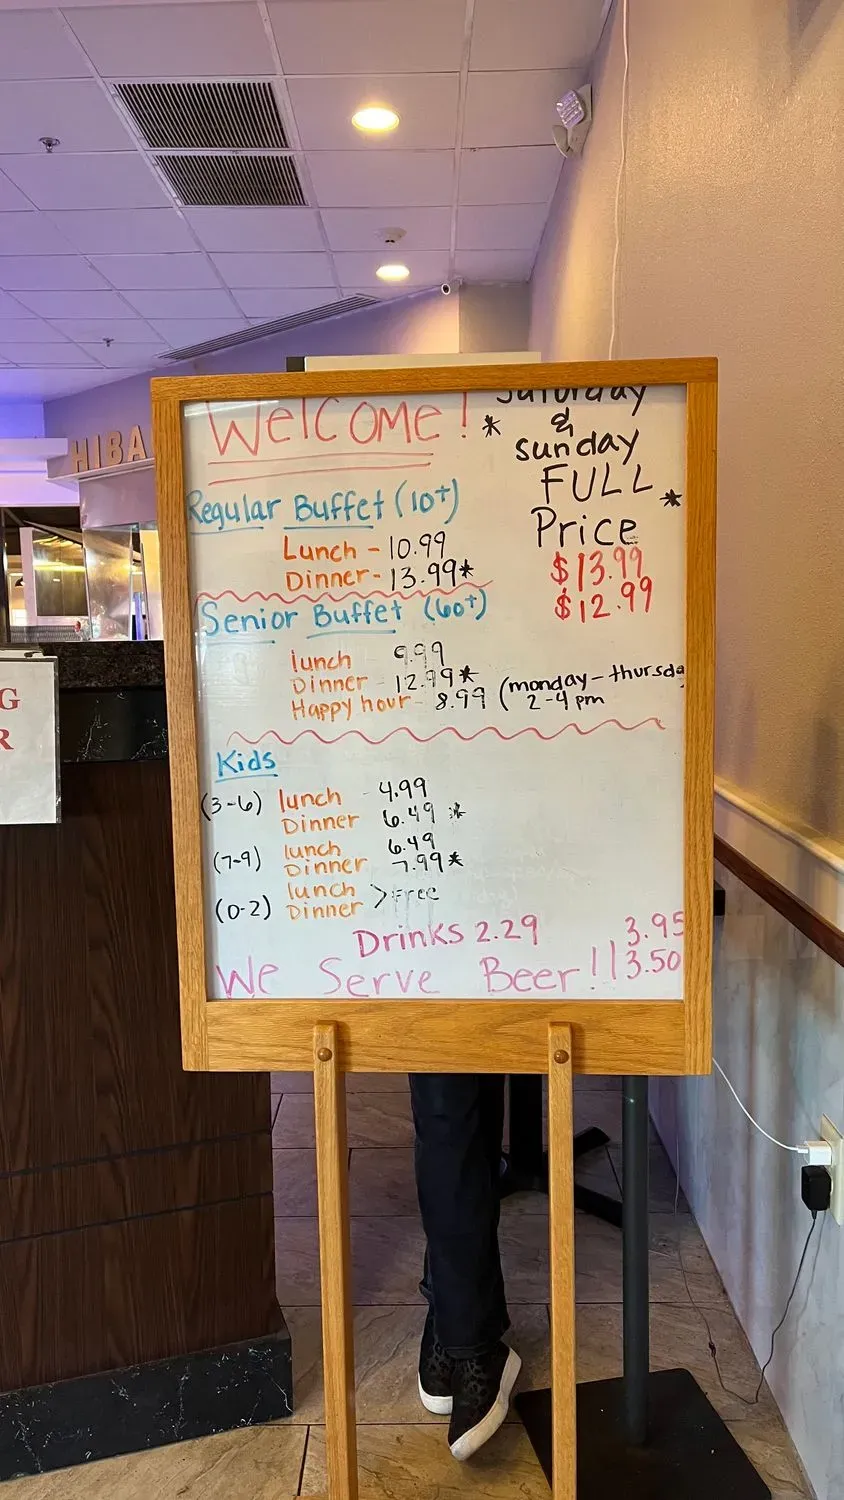 HIBA
G
R
Welcome!
* Saturday
&
Sunday
FULL *
Price
$13.99
$12.99
Regular Buffet (10+)
Lunch - 10.99
Dinner - 13.99*
Senior Buffet (60+)
lunch 9.99
Dinner - 12.99*
Happy hour - 8.99 (monday - thursda
2-4 pm
Kids
(3-6) lunch - 4.99
Dinner 6.49 *
(7-9) lunch 6.49
Dinner 7.99*
(0-2) lunch
Dinner > Free
Drinks 2.29
We Serve Beer!!
3.95
3.50